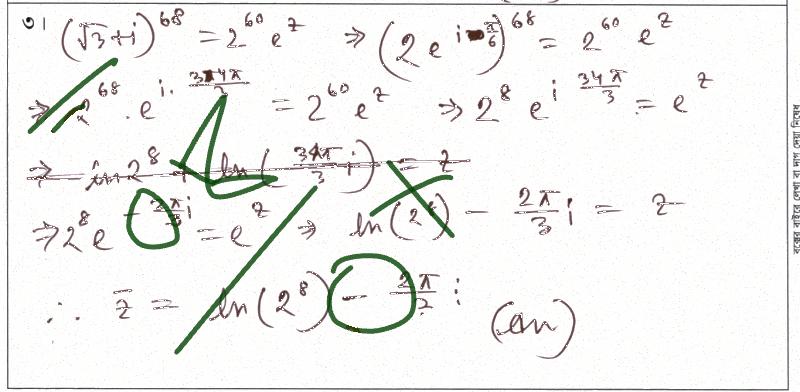 ৩। (√3+i)^68 = 2^60 e^z ⇒ (2 e^{i π/6})^68 = 2^60 e^z
⇒ 2^68 . e^{i. 34π/3} = 2^60 e^z ⇒ 2^8 e^{i 34π/3} = e^z
⇒ ln 2^8 + ln(34π/3 i) = z
⇒ 2^8 e^{- 2π/3 i} = e^z ⇒ ln(2^8) - 2π/3 i = z
∴ z = ln(2^8) - 2π/3 i (an)
বক্সের বাইরে লেখা বা দাগ দেয়া নিষেধ